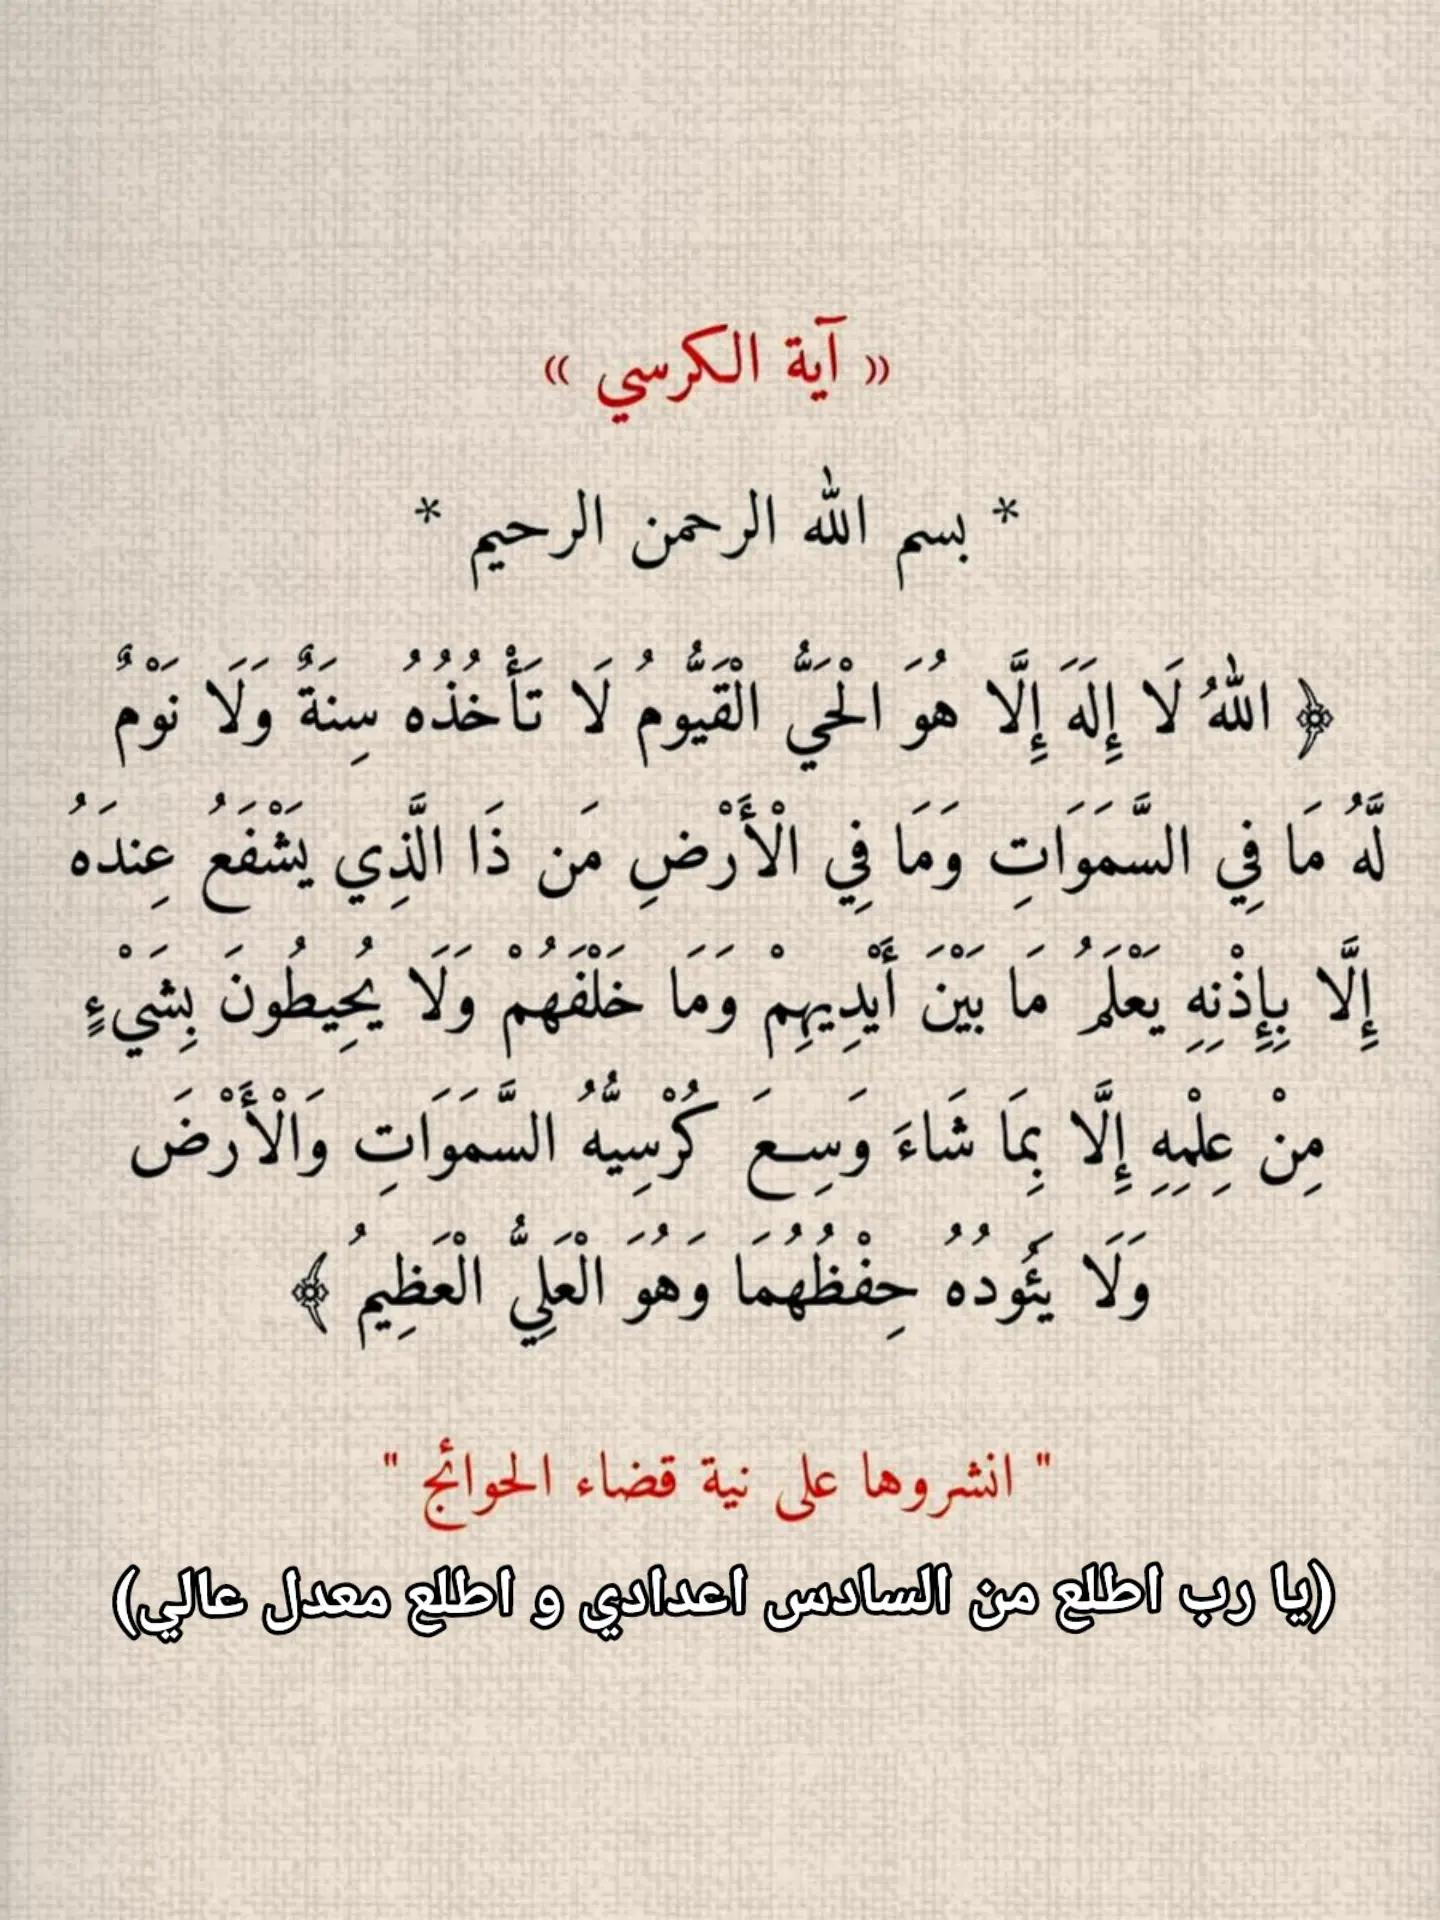 « آية الكرسي »
* بسم الله الرحمن الرحيم *
﴿ اللهُ لَا إِلَهَ إِلَّا هُوَ الْحَيُّ الْقَيُّومُ لَا تَأْخُذُهُ سِنَةٌ وَلَا نَوْمٌ
لَّهُ مَا فِي السَّمَوَاتِ وَمَا فِي الْأَرْضِ مَن ذَا الَّذِي يَشْفَعُ عِندَهُ
إِلَّا بِإِذْنِهِ يَعْلَمُ مَا بَيْنَ أَيْدِيهِمْ وَمَا خَلْفَهُمْ وَلَا يُحِيطُونَ بِشَيْءٍ
مِنْ عِلْمِهِ إِلَّا بِمَا شَاءَ وَسِعَ كُرْسِيُّهُ السَّمَوَاتِ وَالْأَرْضَ
وَلَا يَئُودُهُ حِفْظُهُمَا وَهُوَ الْعَلِيُّ الْعَظِيمُ ﴾
" انشروها على نية قضاء الحوائج "
(يا رب اطلع من السادس اعدادي و اطلع معدل عالي)